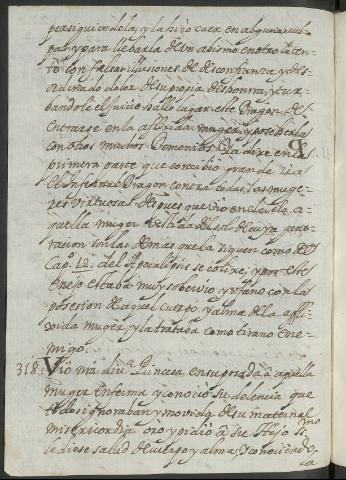 persiguiendola, y la hizo caer en algunas cul-
pas y para lleuarla de un abismo en otro la ten-
to con falsas illusiones de desconfianza y des-
ordenado dolor de su propia deshonrra, y tur-
bandole el Juicio hallo lugar este Dragon de
entrarse en la afligida muger, y poseherla
con otros muchos Demonios. Ya dixe en la
primera parte que concibio grande ira
el Infernal Dragon contra todas las muge-
res virtuosas despues que vio en el cielo a-
quella muger vestida del sol de cuya gene-
racion son las demas que la siguen como del
Capº. 12. del Apocalipsis se colixe, y por este
enojo estaba muy soberuio y ufano con la
posesion de aquel cuerpo y alma de la afli-
gida muger, y la trataba como tirano ene-
migo.
318. Vio nra diuª. Princesa en su posada a aquella
muger enferma y conocio su dolencia que
todos ignoraban y mouida de su maternal
misericordia oro y pidio a su Hijo smo
le diese salud de cuerpo y alma, y conociendo
la